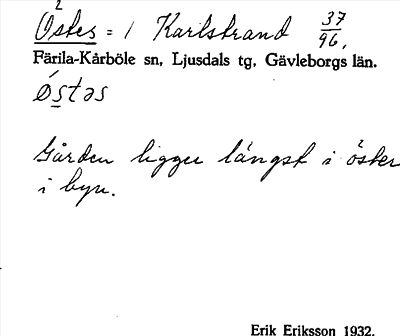 2
Östes = 1 Karlstrand 37/96.
Färila-Kårböle sn, Ljusdals tg, Gävleborgs län.
Østəs
Gården ligger längst i öster
i byn.
Erik Eriksson 1932.